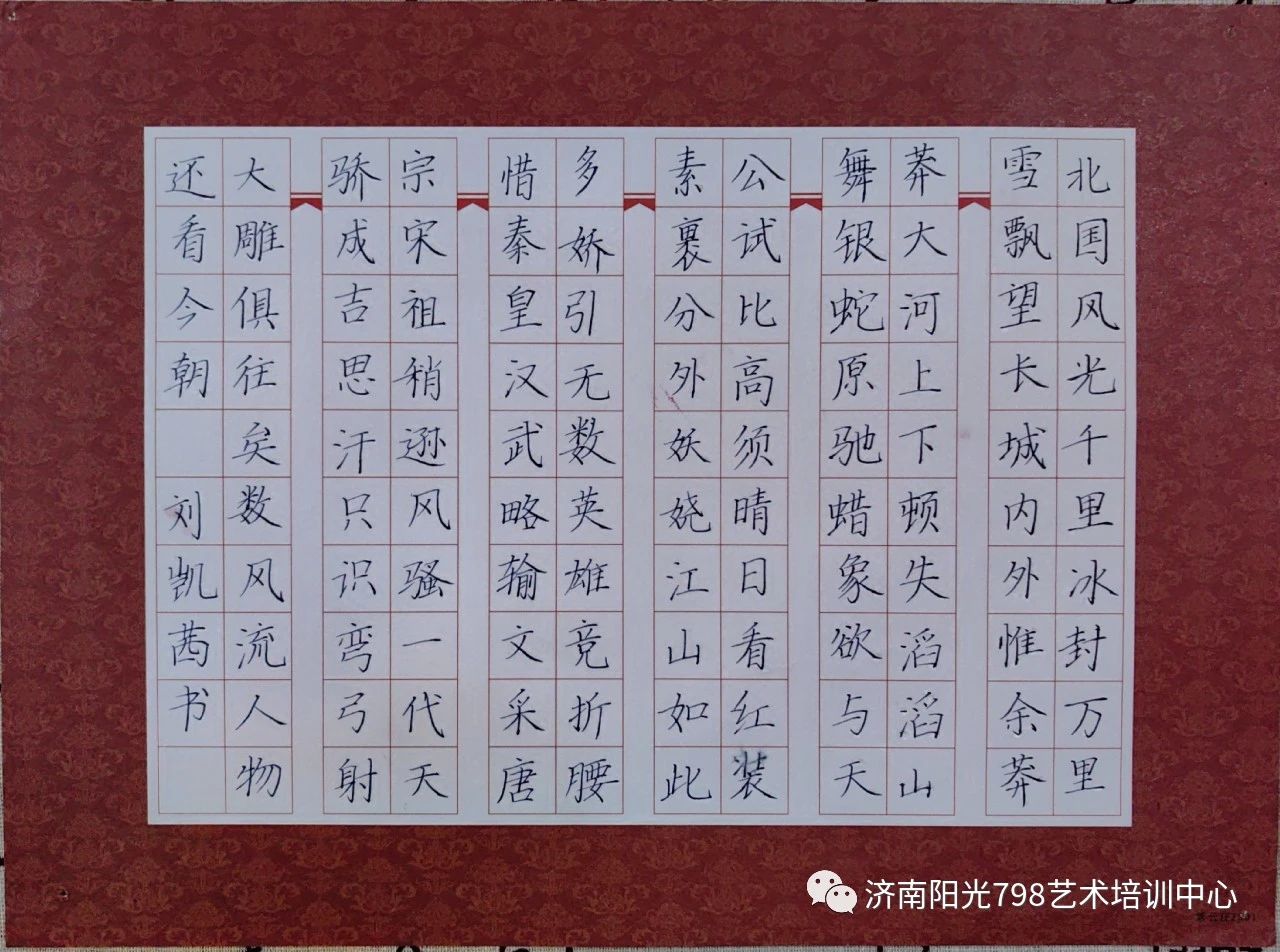 北国风光千里冰封万里
雪飘望长城内外惟余莽
莽大河上下顿失滔滔山
舞银蛇原驰蜡象欲与天
公试比高须晴日看红装
素裹分外妖娆江山如此
多娇引无数英雄竞折腰
惜秦皇汉武略输文采唐
宗宋祖稍逊风骚一代天
骄成吉思汗只识弯弓射
大雕俱往矣数风流人物
还看今朝 刘凯茜书
济南阳光798艺术培训中心